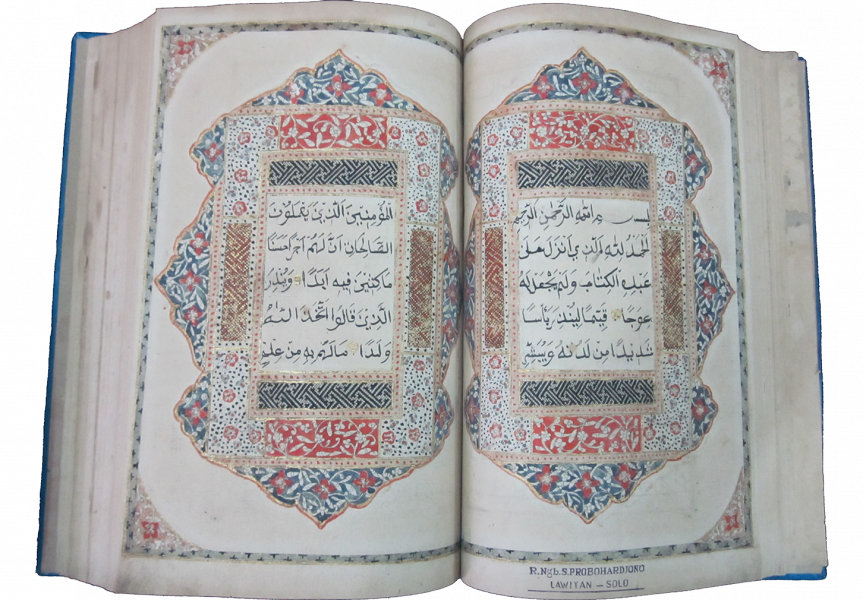 بِسْمِ اللهِ الرَّحْمٰنِ الرَّحِيمِ
الْحَمْدُ لِلّٰهِ الَّذِي أَنْزَلَ عَلَى
عَبْدِهِ الْكِتَابَ وَلَمْ يَجْعَلْ لَهُ
عِوَجًا قَيِّمًا لِيُنْذِرَ بَأْسًا
شَدِيدًا مِنْ لَدُنْهُ وَيُبَشِّرَ
الْمُؤْمِنِينَ الَّذِينَ يَعْمَلُونَ
الصَّالِحَاتِ أَنَّ لَهُمْ أَجْرًا حَسَنًا
مَاكِثِينَ فِيهِ أَبَدًا وَيُنْذِرَ
الَّذِينَ قَالُوا اتَّخَذَ اللهُ
وَلَدًا مَا لَهُمْ بِهِ مِنْ عِلْمٍ
R.Ngb.S.PROBOHARDJONO
LAWITAN – SOLO